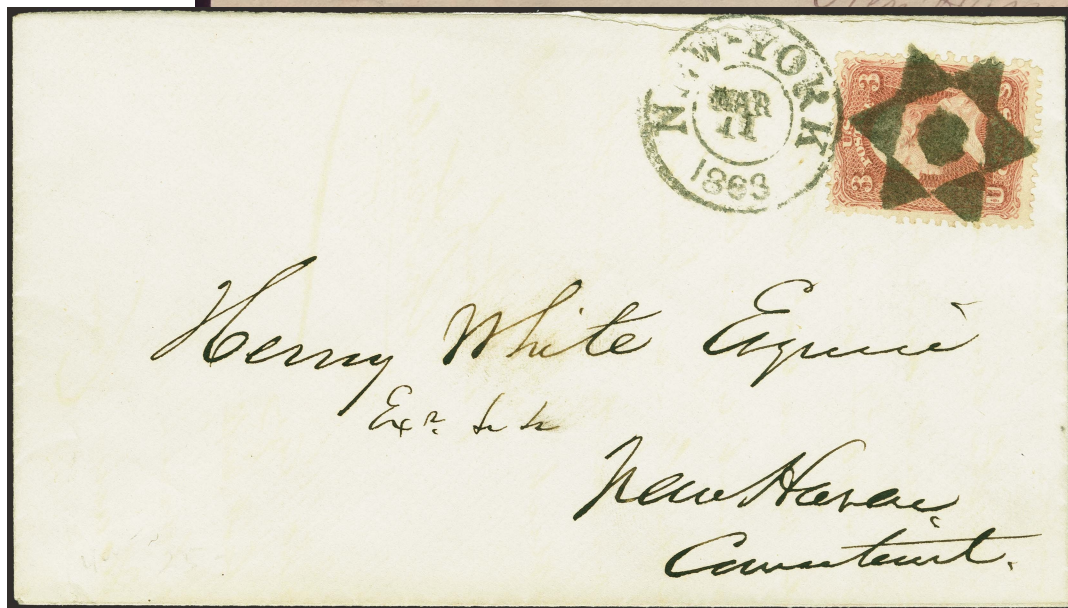 NEW-YORK
MAR
11
1863
3 3
U.S. POST
U S
Henry White Esquire
Exr. &c &c
New Haven.
Connecticut.